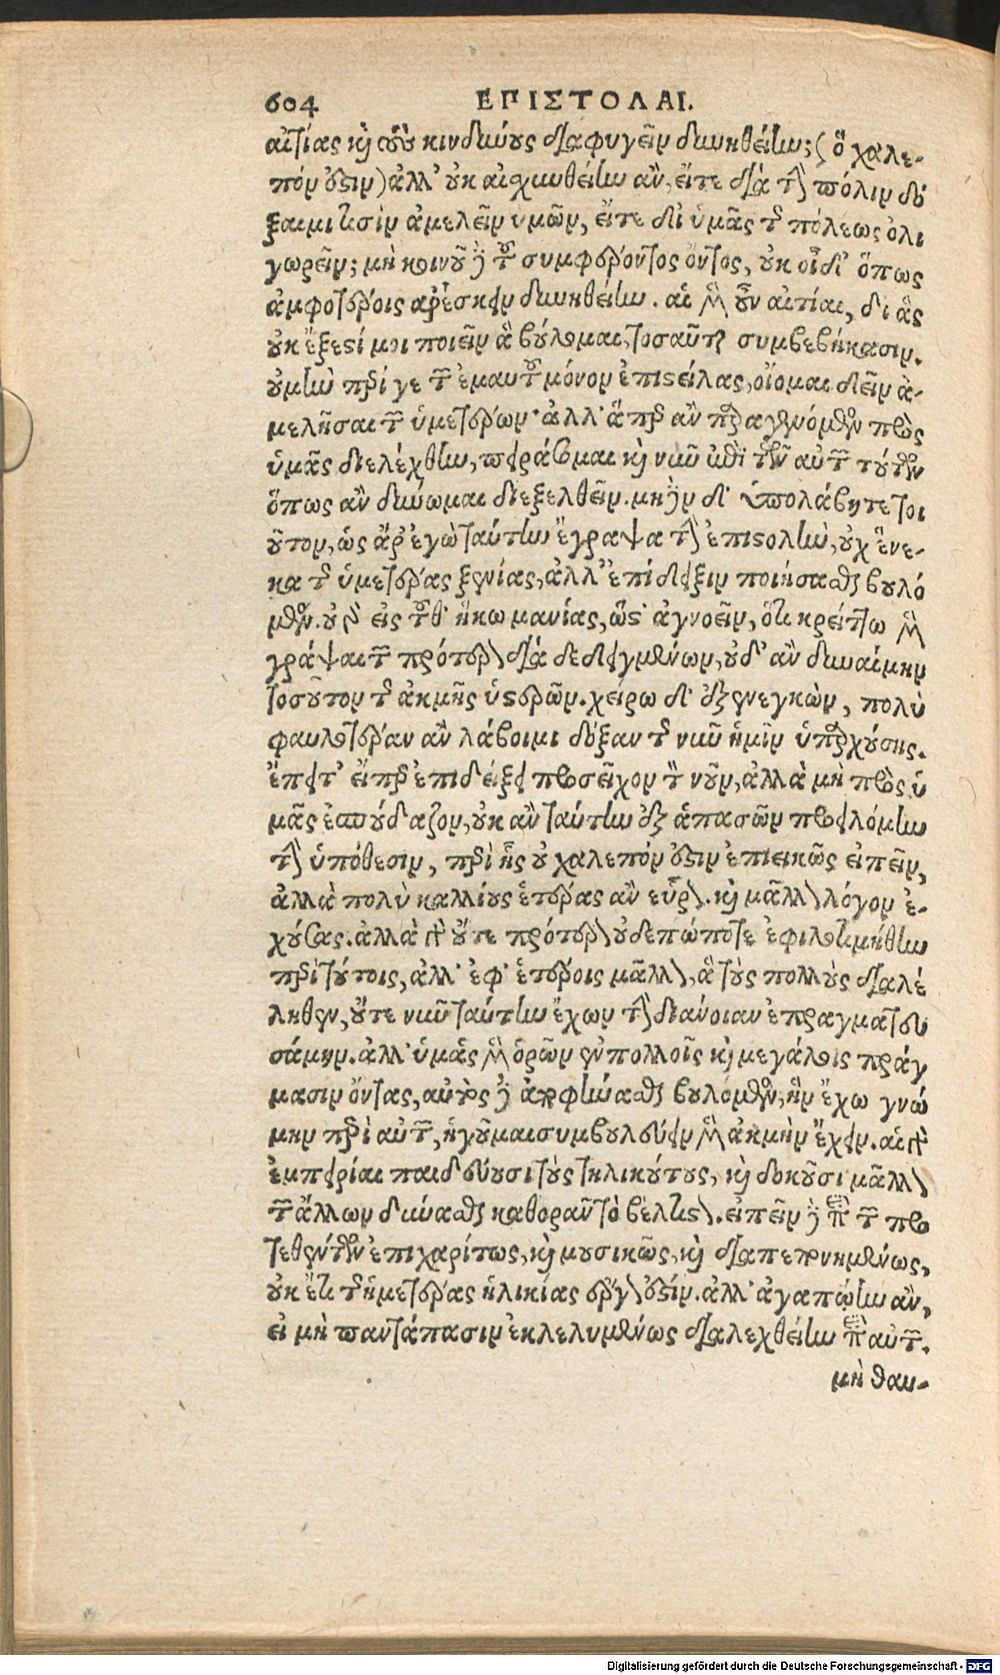 604 ΕΠΙΣΤΟΛΑΙ.
αἰτίας καὶ τοὺς κινδύνους διαφυγεῖν δυνηθείην; (ὃ χαλε-
πόν ἐστιν) ἀλλ' οὐκ αἰσχυνθείην ἂν, εἴτε διὰ τὴν πόλιν δό
ξαιμί τισιν ἀμελεῖν ὑμῶν, εἴτε δι' ὑμᾶς τῆς πόλεως ὀλι
γωρεῖν; μὴ κοινοῦ δὲ τοῦ συμφέροντος ὄντος, οὐκ οἶδ' ὅπως
ἀμφοτέροις ἀρέσκειν δυνηθείην. αἱ μὲν οὖν αἰτίαι, δι' ἃς
οὐκ ἔξεστί μοι ποιεῖν ἃ βούλομαι, τοσαῦται συμβεβήκασιν.
οὐ μὴν περί γε τῶν ἐμαυτοῦ μόνον ἐπιστείλας, οἴομαι δεῖν ἀ-
μελῆσαι τῶν ὑμετέρων· ἀλλ' ἅπερ ἂν παραγενόμενος πρὸς
ὑμᾶς διελέχθην, πειράσομαι καὶ νῦν περὶ τῶν αὐτῶν τούτων
ὅπως ἂν δύνωμαι διεξελθεῖν. μηδὲν δ' ὑπολάβητε τοι
οῦτον, ὡς ἄρ' ἐγὼ ταύτην ἔγραψα τὴν ἐπιστολὴν, οὐχ ἕνε-
κα τῆς ὑμετέρας ξενίας, ἀλλ' ἐπίδειξιν ποιήσασθαι βουλό
μενος. οὐ γὰρ εἰς τοῦθ' ἥκω μανίας, ὥστ' ἀγνοεῖν, ὅτι κρείττω μὲν
γράψαι τῶν πρότερον διαδεδομένων, οὐδ' ἂν δυναίμην
τοσοῦτον τῆς ἀκμῆς ὑστερῶν. χείρω δ' ἐξενεγκὼν, πολὺ
φαυλοτέραν ἂν λάβοιμι δόξαν τῆς νῦν ἡμῖν ὑπαρχούσης.
ἔπειτ' εἴπερ ἐπιδείξει προσεῖχον τὸν νοῦν, ἀλλὰ μὴ πρὸς ὑ
μᾶς ἐσπούδαζον, οὐκ ἂν ταύτην ἐξ ἁπασῶν προειλόμην
τὴν ὑπόθεσιν, περὶ ἧς οὐ χαλεπόν ἐστιν ἐπιεικῶς εἰπεῖν,
ἀλλὰ πολὺ καλλίους ἑτέρας ἂν εὗρον. καὶ μᾶλλον λόγον ἐ-
χούσας. ἀλλὰ γὰρ οὔτε πρότερον οὐδεπώποτε ἐφιλοτιμήθην
περὶ τούτοις, ἀλλ' ἐφ' ἑτέροις μᾶλλον, ἃ τοὺς πολλοὺς διαλέ
ληθεν, οὔτε νῦν ταύτην ἔχων τὴν διάνοιαν ἐπραγματευ
σάμην. ἀλλ' ὑμᾶς μὲν ὁρῶν ἐν πολλοῖς καὶ μεγάλοις πράγ
μασιν ὄντας, αὐτὸς δὲ ἀποφήνασθαι βουλόμενος, ἣν ἔχω γνώ
μην περὶ αὐτῶν, ἡγοῦμαι συμβουλεύειν μὲν ἀκμὴν ἔχειν. αἱ γὰρ
ἐμπειρίαι παιδεύουσι τοὺς τηλικούτους, καὶ δοκοῦσι μᾶλλον
τῶν ἄλλων δύνασθαι καθορᾶν τὸ βέλτιστον. εἰπεῖν δὲ περὶ τῶν προ
τεθέντων ἐπιχαρίτως, καὶ μουσικῶς, καὶ διαπεπονημένως,
οὐκ ἔτι τῆς ἡμετέρας ἡλικίας ἔργον ἐστίν. ἀλλ' ἀγαπῴην ἂν,
εἰ μὴ παντάπασιν ἐκλελυμένως διαλεχθείην περὶ αὐτῶν.
μὴ θαυ-
Digitalisierung gefördert durch die Deutsche Forschungsgemeinschaft - DFG